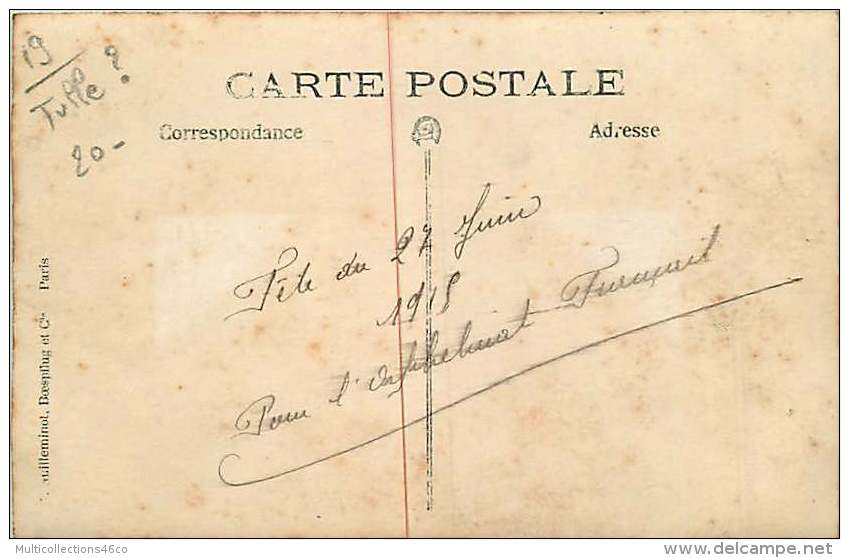 19
Tulle?
20-
CARTE POSTALE
Correspondance
Adresse
Fête du 27 Juin
1915
Pour l'orphelinat
uilleminot, Bœspflug et Cie Paris
Multicollections46co
www.delcampe.net